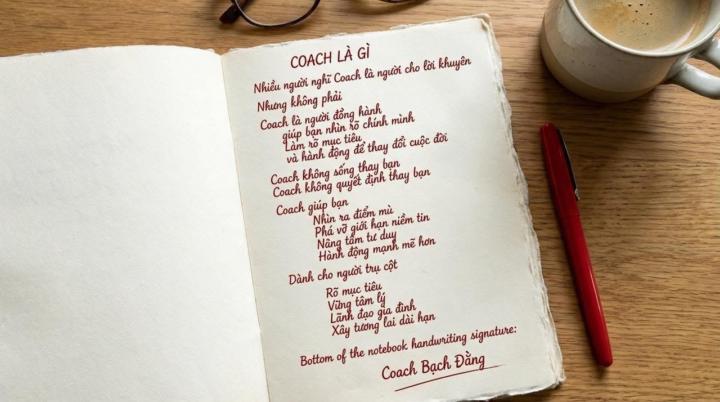 COACH LÀ GÌ
Nhiều người nghĩ Coach là người cho lời khuyên
Nhưng không phải
Coach là người đồng hành
giúp bạn nhìn rõ chính mình
Làm rõ mục tiêu
và hành động để thay đổi cuộc đời
Coach không sống thay bạn
Coach không quyết định thay bạn
Coach giúp bạn
Nhìn ra điểm mù
Phá vỡ giới hạn niềm tin
Nâng tầm tư duy
Hành động mạnh mẽ hơn
Dành cho người trụ cột
Rõ mục tiêu
Vững tâm lý
Lãnh đạo gia đình
Xây tương lai dài hạn
Bottom of the notebook handwriting signature:
Coach Bạch Đằng